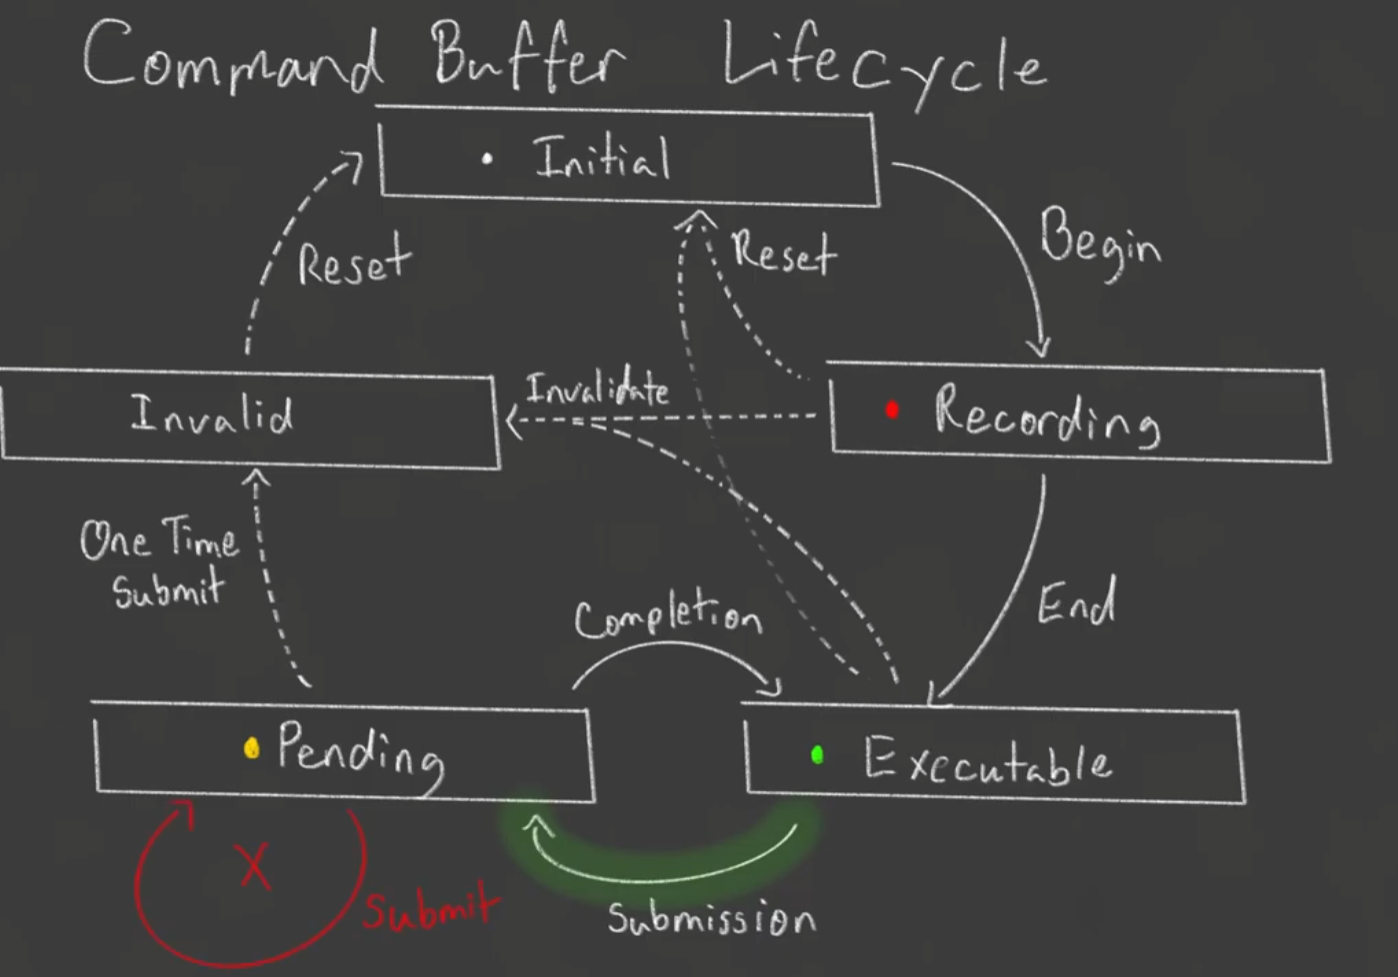 Command Buffer Lifecycle
Initial
Begin
Reset
Reset
Invalidate
Invalid
Recording
One Time
Submit
Completion
End
Pending
Executable
X
Submit
Submission